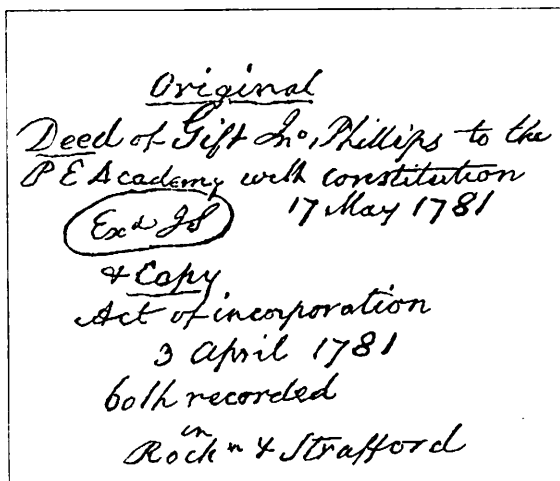 Original
Deed of Gift Jno, Phillips to the
P E Academy with constitution
Exd JS 17 May 1781
& Copy
Act of incorporation
3 April 1781
both recorded
in
Rockn & Strafford